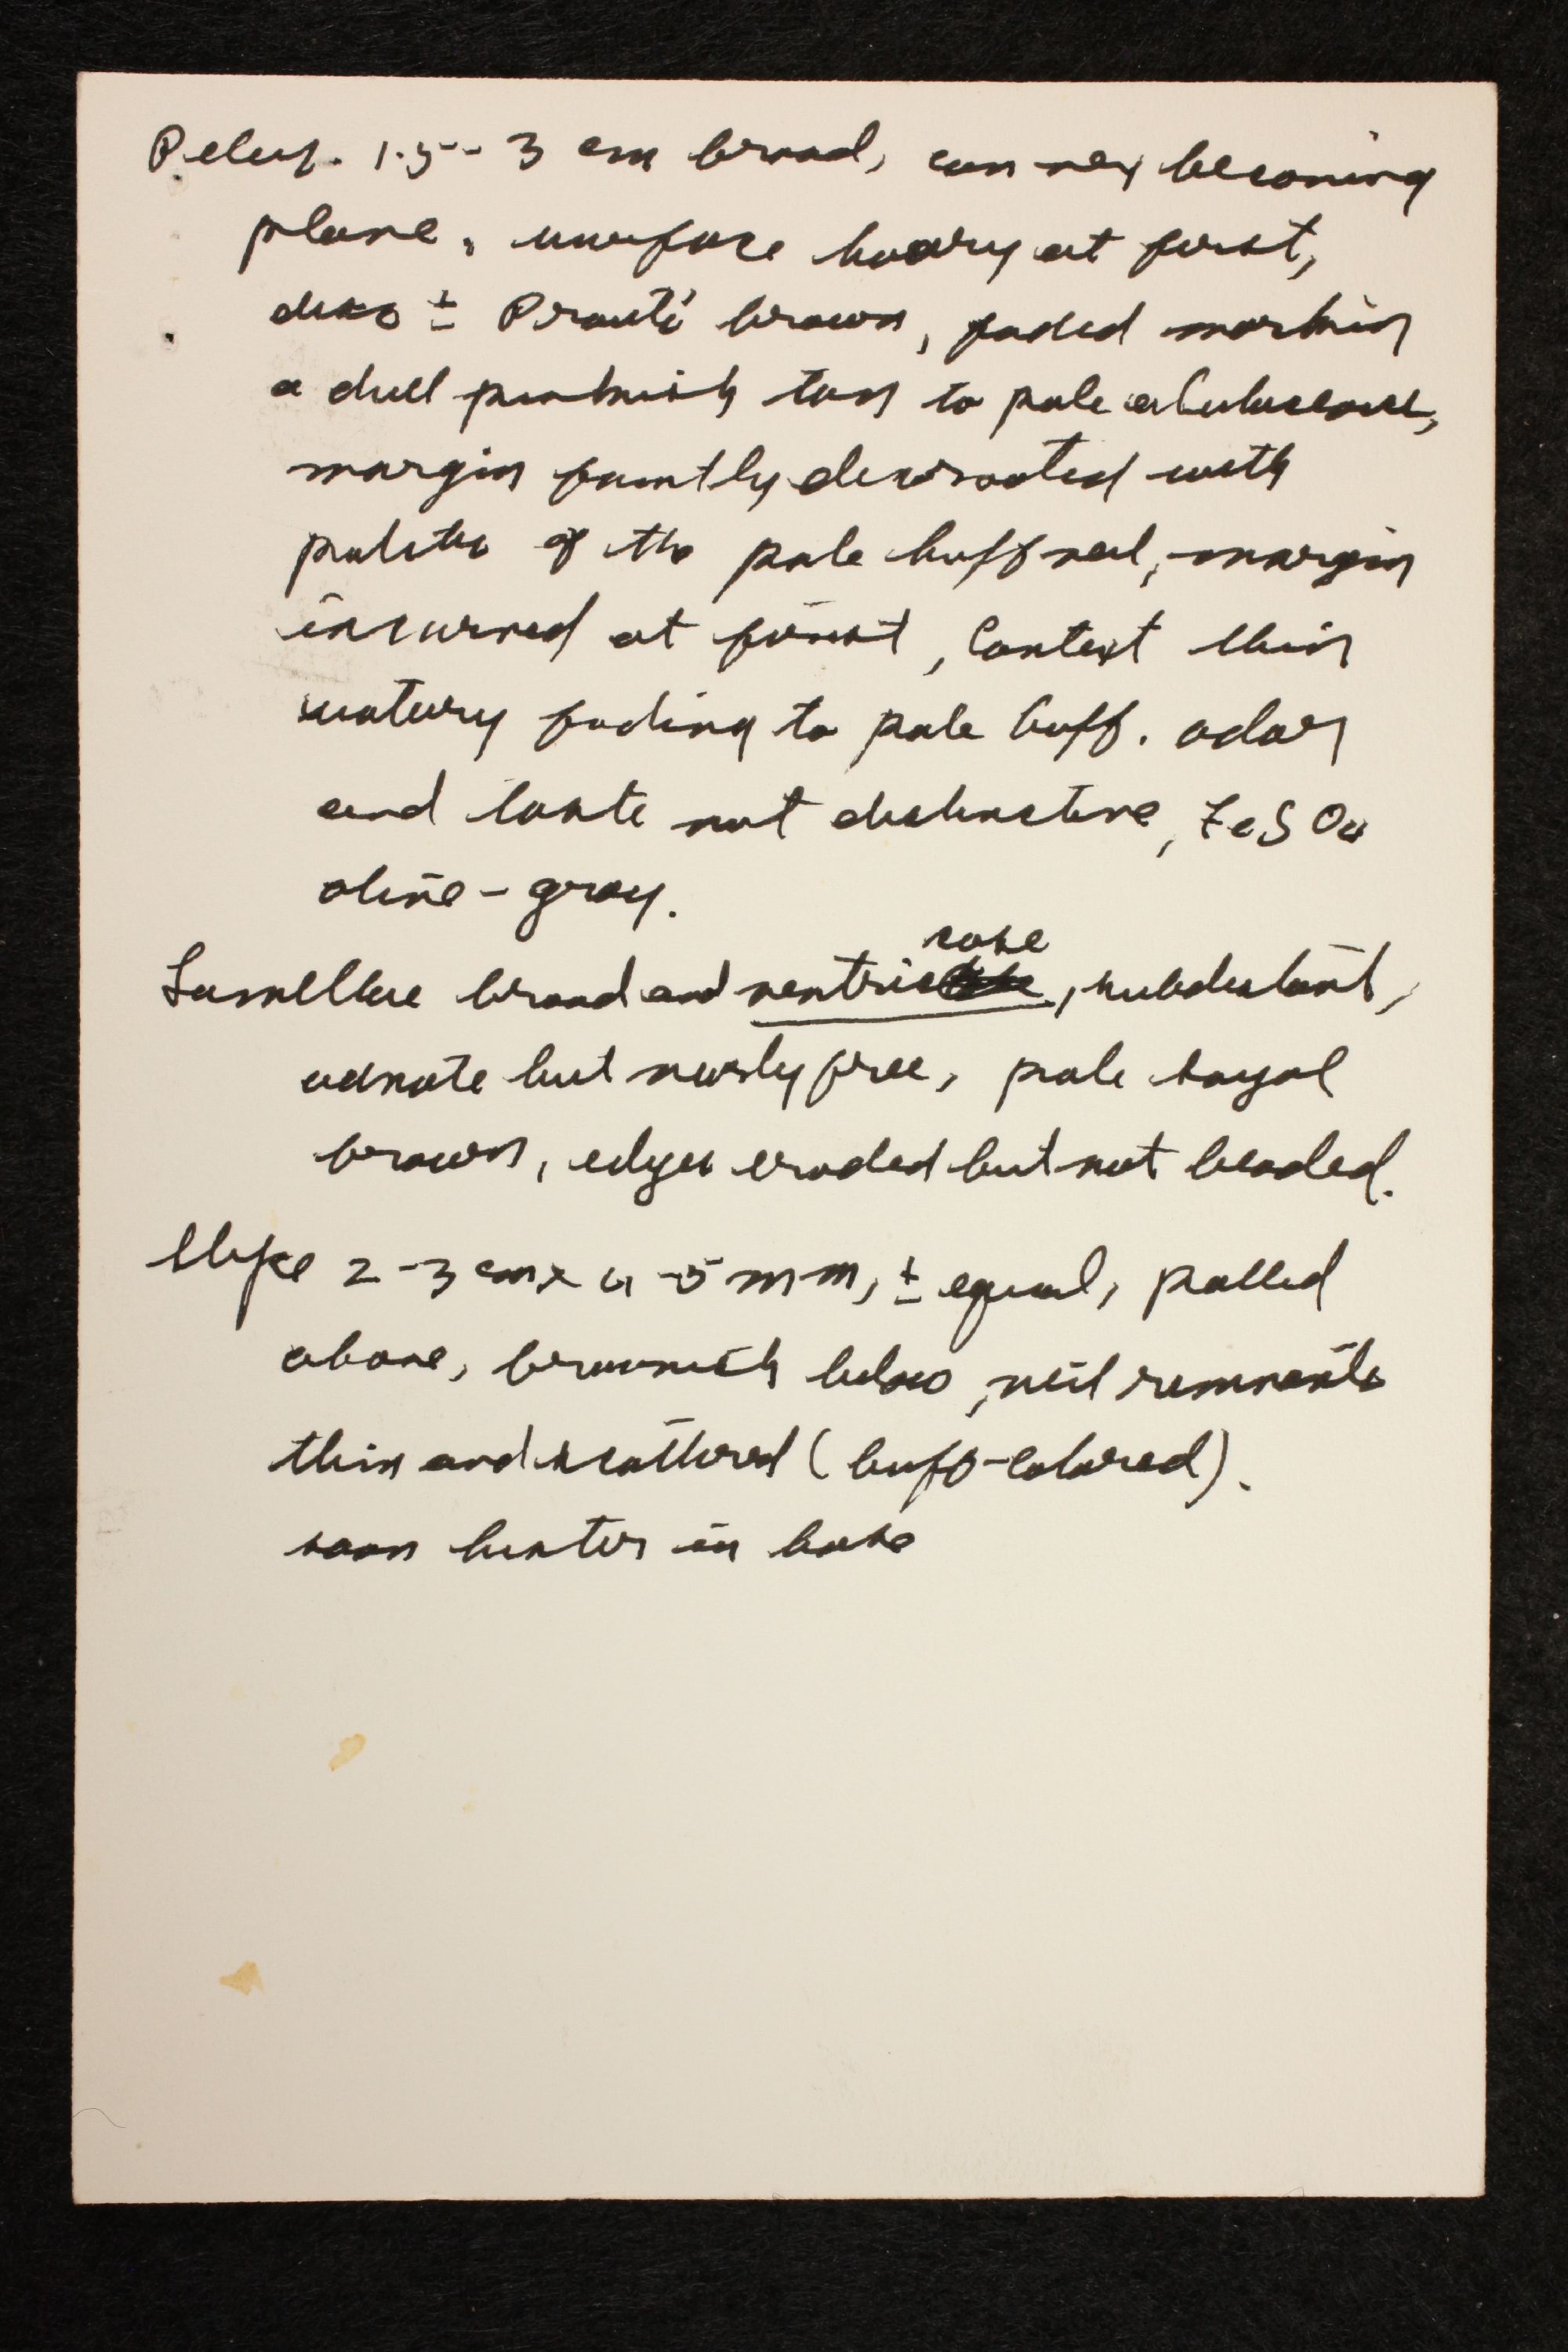 Pileus. 1.5-3 cm broad, convex becoming
plane, surface hoary at first,
disc ± Prouts brown, faded margin
a dull pinkish tan to pale alutaceous,
margin faintly decorated with
patches of the pale buff veil, margin
incurved at first, Context thin
watery fading to pale buff. odor
and taste not distinctive, FeSO4
olive-gray.
Lamellae broad and ventricose, subdistant,
adnate but nearly free, pale sayal
brown, edges eroded but not beaded.
Stipe 2-3 cm x 4-5 mm, ± equal, pallid
above, brownish below, veil remnants
thin and scattered (buff-colored).
soon darker in base